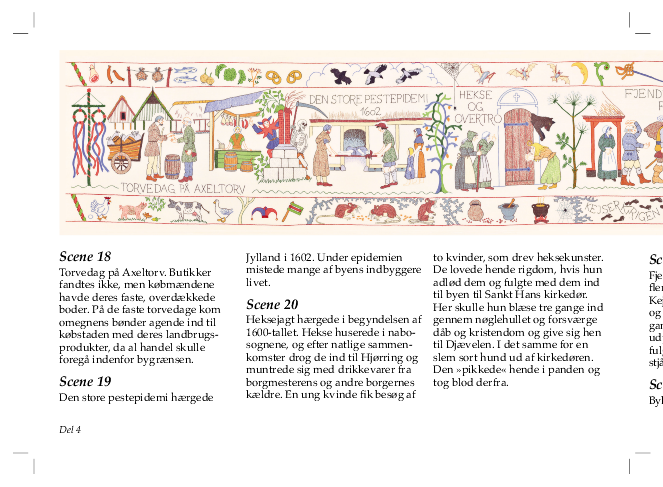 DEN STORE PESTEPIDEMI
1602
HEKSE
OG
OVERTRO
FJEND
TORVEDAG PÅ AXELTORV
KEJSERKRIGEN
Scene 18
Torvedag på Axeltorv. Butikker
fandtes ikke, men købmændene
havde deres faste, overdækkede
boder. På de faste torvedage kom
omegnens bønder agende ind til
købstaden med deres landbrugs-
produkter, da al handel skulle
foregå indenfor bygrænsen.
Scene 19
Den store pestepidemi hærgede
Jylland i 1602. Under epidemien
mistede mange af byens indbyggere
livet.
Scene 20
Heksejagt hærgede i begyndelsen af
1600-tallet. Hekse huserede i nabo-
sognene, og efter natlige sammen-
komster drog de ind til Hjørring og
muntrede sig med drikkevarer fra
borgmesterens og andre borgernes
kældre. En ung kvinde fik besøg af
to kvinder, som drev heksekunster.
De lovede hende rigdom, hvis hun
adlød dem og fulgte med dem ind
til byen til Sankt Hans kirkedør.
Her skulle hun blæse tre gange ind
gennem nøglehullet og forsværge
dåb og kristendom og give sig hen
til Djævelen. I det samme for en
slem sort hund ud af kirkedøren.
Den »pikkede« hende i panden og
tog blod derfra.
Sc
Fje
fler
Kej
og
gan
ud
ful
stjå
Sc
Byl
Del 4